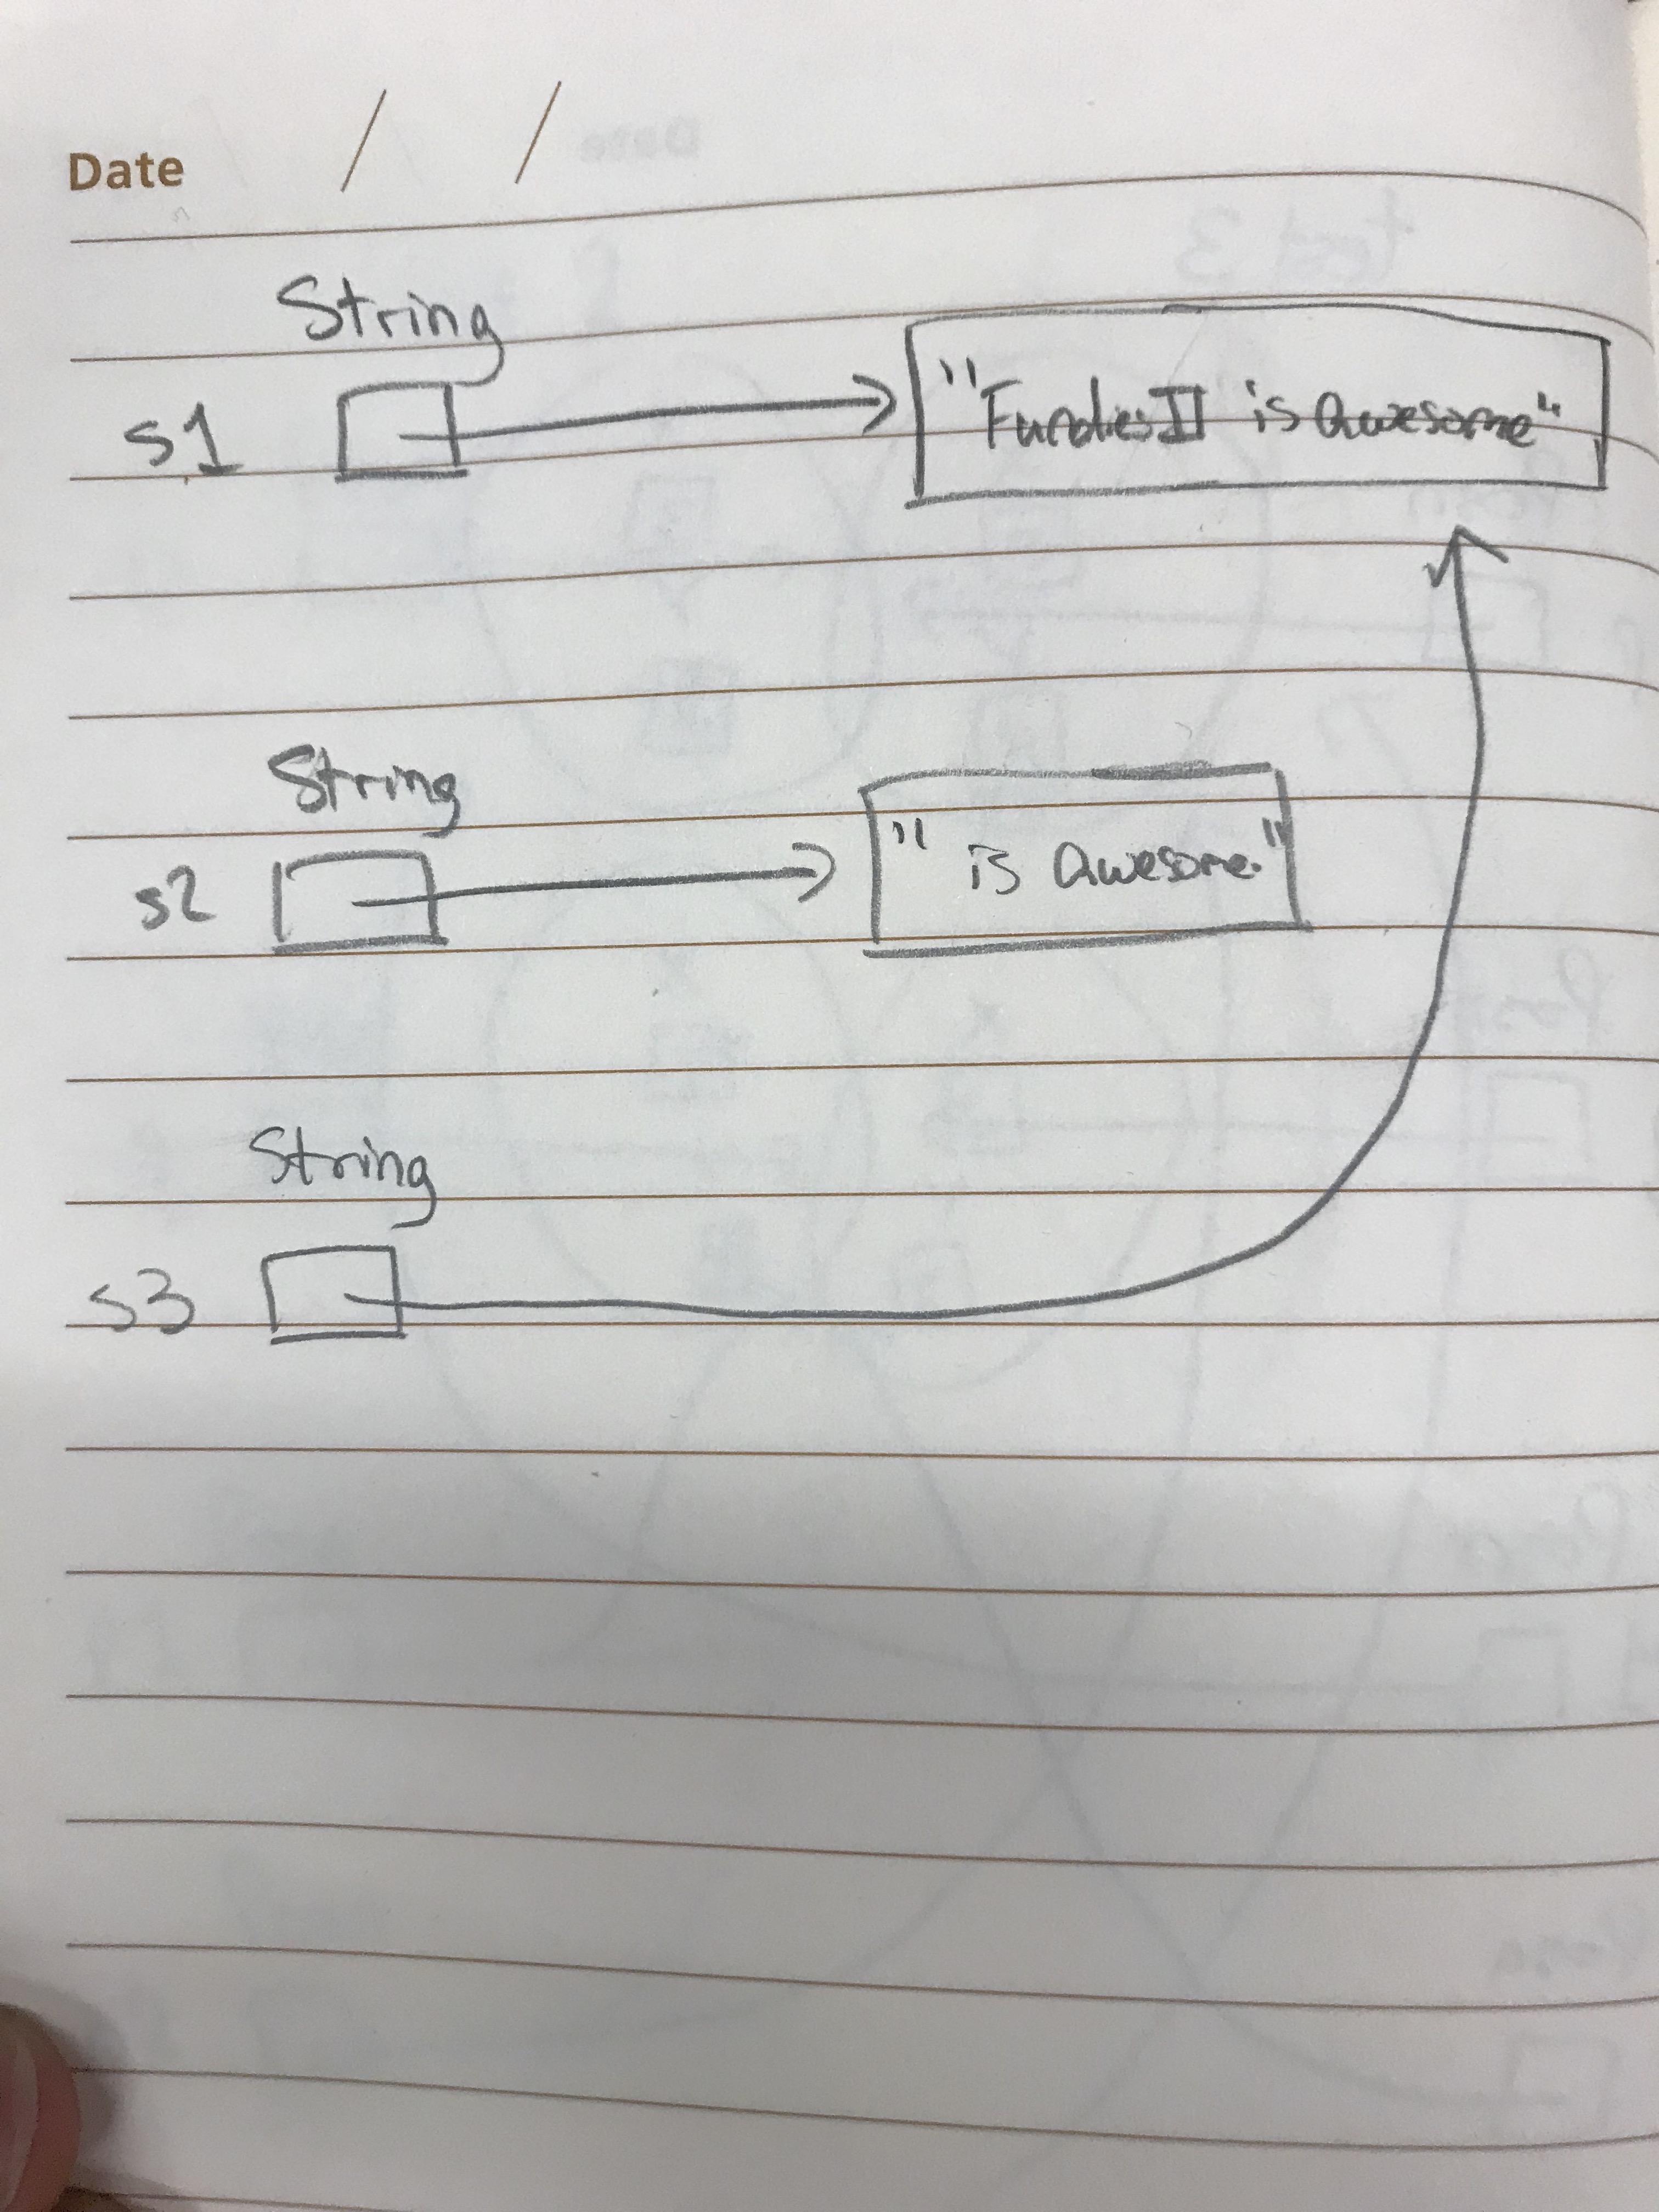 Date / /
String
s1 "Fundies II is awesome"
String
s2 " is awesome."
String
s3